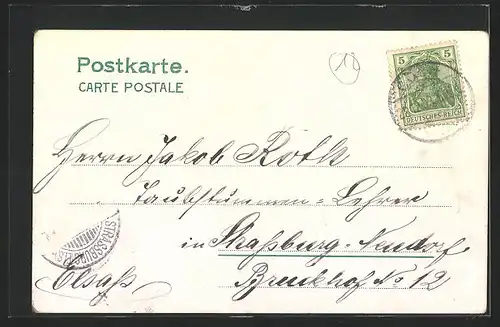 Postkarte.
CARTE POSTALE
12
5 5
DEUTSCHES REICH
Herrn Jakob Roth
Taubstummen=Lehrer
in Straßburg-Neudorf
Elsaß
No 12